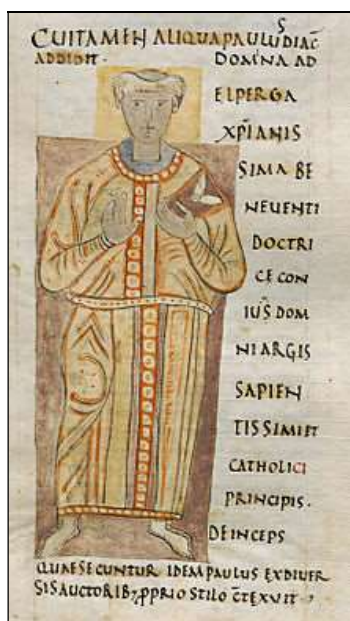 CUITAMEN ALIQUA PAULUS DIAC̄
ADDIDIT · DOMINA AD
ELPERGA
XP̄IANIS
SIMA BE
NEUENTI
DOCTRI
CE CON
IUS̄ DOM
NI ARGIS
SAPIEN
TISSIMI ET
CATHOLICI
PRINCIPIS ·
DEINCEPS
QUAE SECUNTUR IDEM PAULUS EX DIUER
SIS AUCTORIB; PPRIO STILO C̄TEXUIT